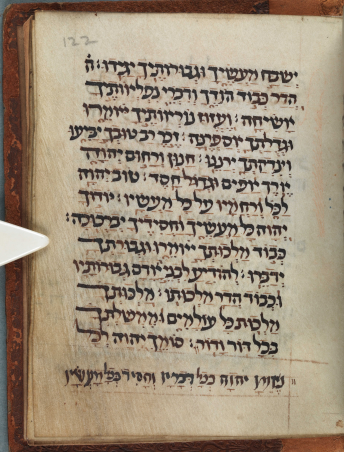 122
ישבח מעשיך וגבורותיך יגידו: ה
הדר כבוד הודך ודברי נפלאותיך
אשיחה: ועזוז נוראותיך יאמרו
וגדלתך אספרנה: זכר רב טובך יביעו
וצדקתך ירננו: חנון ורחום יהוה
ארך אפים וגדל חסד: טוב יהוה
לכל ורחמיו על כל מעשיו: יודוך
יהוה כל מעשיך וחסידיך יברכוכה:
כבוד מלכותך יאמרו וגבורתך
ידברו: להודיע לבני אדם גבורותיו
וכבוד הדר מלכותו: מלכותך
מלכות כל עולמים וממשלתך
בכל דור ודור: סומך יהוה לכל
נאמן יהוה בכל דבריו וחסיד בכל מעשיו